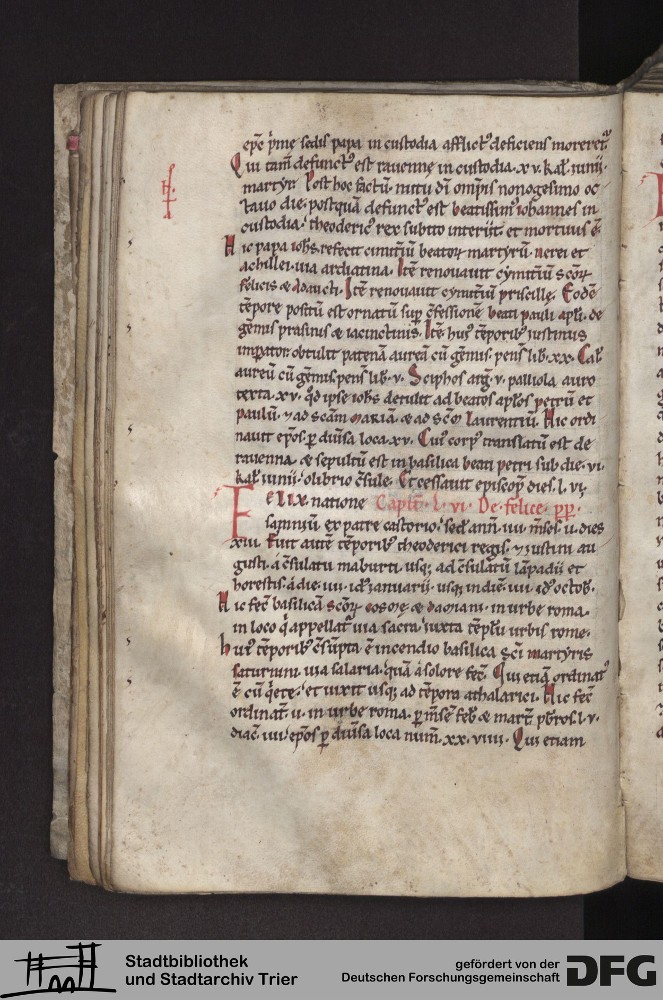 epc̄ p̄mę sedis papa in custodia afflictꝰ deficiens moreret᷑.
Qui tam̄ defunctꝰ est rauennę in custodia. xv. kal̄. iunii.
martyr. Post hoc factū nutu dī om̄ptis nonogesimo oc
tauo die. postquā defunctꝰ est beatissimꝰ iohannes in
custodia. theodericꝰ rex subito interiit. et mortuus ē.
Hic papa ioh̄s refecit cimit̄iū beatoꝝ martyrū. nerei et
achillei. uia ardiatina. Itē renouauit cymit̄iū scōꝝ
felicis & adaucti. Itē renouauit cymit̄iū priscillę. Eodē
tēpore positū est ornatū sup̄ c̄fessionē beati pauli apl̄i. de
gēmis prasinis & iacinctinis. Itē. huiꝰ tēporibꝰ iustinus
imp̄ator. obtulit patenā aureā cū gēmis. pens̄ lib̄. xx. Cal̄
aureū cū gēmis. pens̄ lib̄. v. Sciphos arḡ. v. palliola auro
texta. xv. qd̄ ipse ioh̄s detulit ad beatos apl̄os petrū et
paulū. ⁊ ad scām mariā. & ad scm̄ laurentiū. Hic ordi
nauit ep̄os. ꝑ diūsa loca. xv. Cuiꝰ corpꝰ translatū est de
rauenna. & sepultū est in basilica beati petri sub die. vi.
kal̄. iunii. olibrio c̄sule. Et cessauit episcopꝰ dies. l. vi.
FELIX. natione Capit̄. l. vi. De felice. pp.
samniū ex patre castorio. sed̄. ann̄. iiii. m̄ses. ii. dies
xiii. Fuit autē tēporibꝰ theoderici regis. ⁊ iustini au
gusti. a c̄sulatu maburti. usq; ad c̄sulatū lāpadii et
horestis. a die. iiii. id' ianuarii. usq; in diē. iiii. id' octob̄.
Hic fec̄ basilicā scōꝝ cosmę & damiani. in urbe roma.
in loco q̄ appellat᷑ uia sacra. iuxta tēplū urbis rome.
huiꝰ tēporibꝰ c̄sūpta ē incendio basilica sc̄i martyris
saturnini uia salaria. quā a solore fec̄. Qui etiā ordinatꝰ
ē cū q̄ete. et uixit usq; ad tēpora athalarici. Hic fec̄
ordinat̄. ii. in urbe roma. ꝑ m̄sē feb̄. & mart̄. pb̄ros. l. v.
diac̄. iiii. ep̄os ꝑ diūsa loca num̄. xx. viiii. Qui etiam
Stadtbibliothek
und Stadtarchiv Trier
gefördert von der
Deutschen Forschungsgemeinschaft
DFG